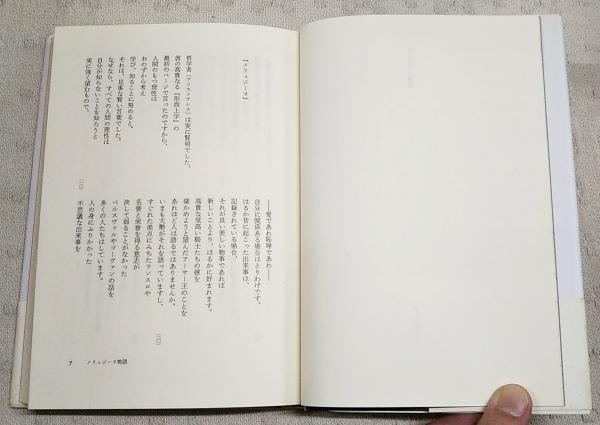 『メリュジーヌ』
哲学者(アリストテレス)は実に賢明でした、
彼の高貴なる『形而上学』の
最初のページで言ったのですから、
人間のもつ理性は
おのずから考え
学び、知ることに努めると。
それは、見事な賢い言葉でした。
なぜなら、すべての人間の理性は
自分が知らないことを知ろうと
実に強く望むもので、
――愛であれ恥辱であれ――
自分に関係ある場合はとりわけです。
はるか昔に起こった出来事は、
記録されている場合、
それが良い美しい物事であれば
新しいことより、はるかに好まれます。
高貴な気高い騎士たちの徳を
確かめようと望んだアーサー王のことを
あれほど人は語るではありませんか。
いまも大勢がそれを語っていますし、
すぐれた美点にみちたランスロや
名誉と栄誉を得る意志が
決して弱ることがなかった
ペルスヴァルやゴーヴァンの話を
多くの人たちはしています。
人の身にふりかかった
不思議な出来事を
7
メリュジーヌ物語